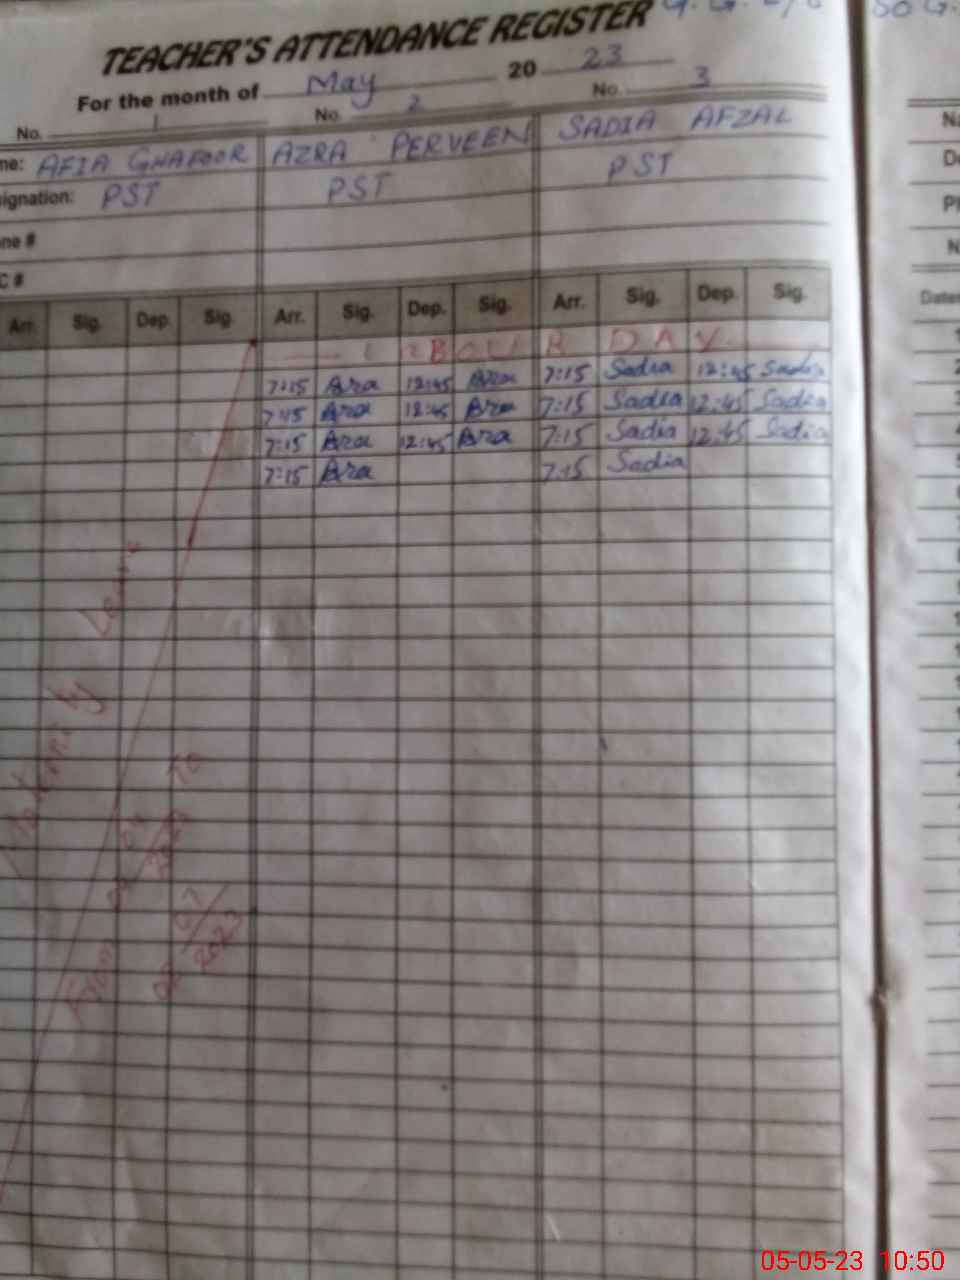 TEACHER'S ATTENDANCE REGISTER
For the month of May 20 23
No. 1 No. 2 No. 3
me: AFIA GHAFOOR AZRA PERVEEN SADIA AFZAL
signation: PST PST PST
one #
C #
Arr. Sig. Dep. Sig. Arr. Sig. Dep. Sig. Arr. Sig. Dep. Sig.
LABOUR DAY
7:15 Azra 12:45 Azra 7:15 Sadia 12:45 Sadia
7:15 Azra 12:45 Azra 7:15 Sadia 12:45 Sadia
7:15 Azra 12:45 Azra 7:15 Sadia 12:45 Sadia
7:15 Azra 7:15 Sadia
Maternity Leave
From 04 2023 To
02 07 2023
Date
05-05-23 10:50